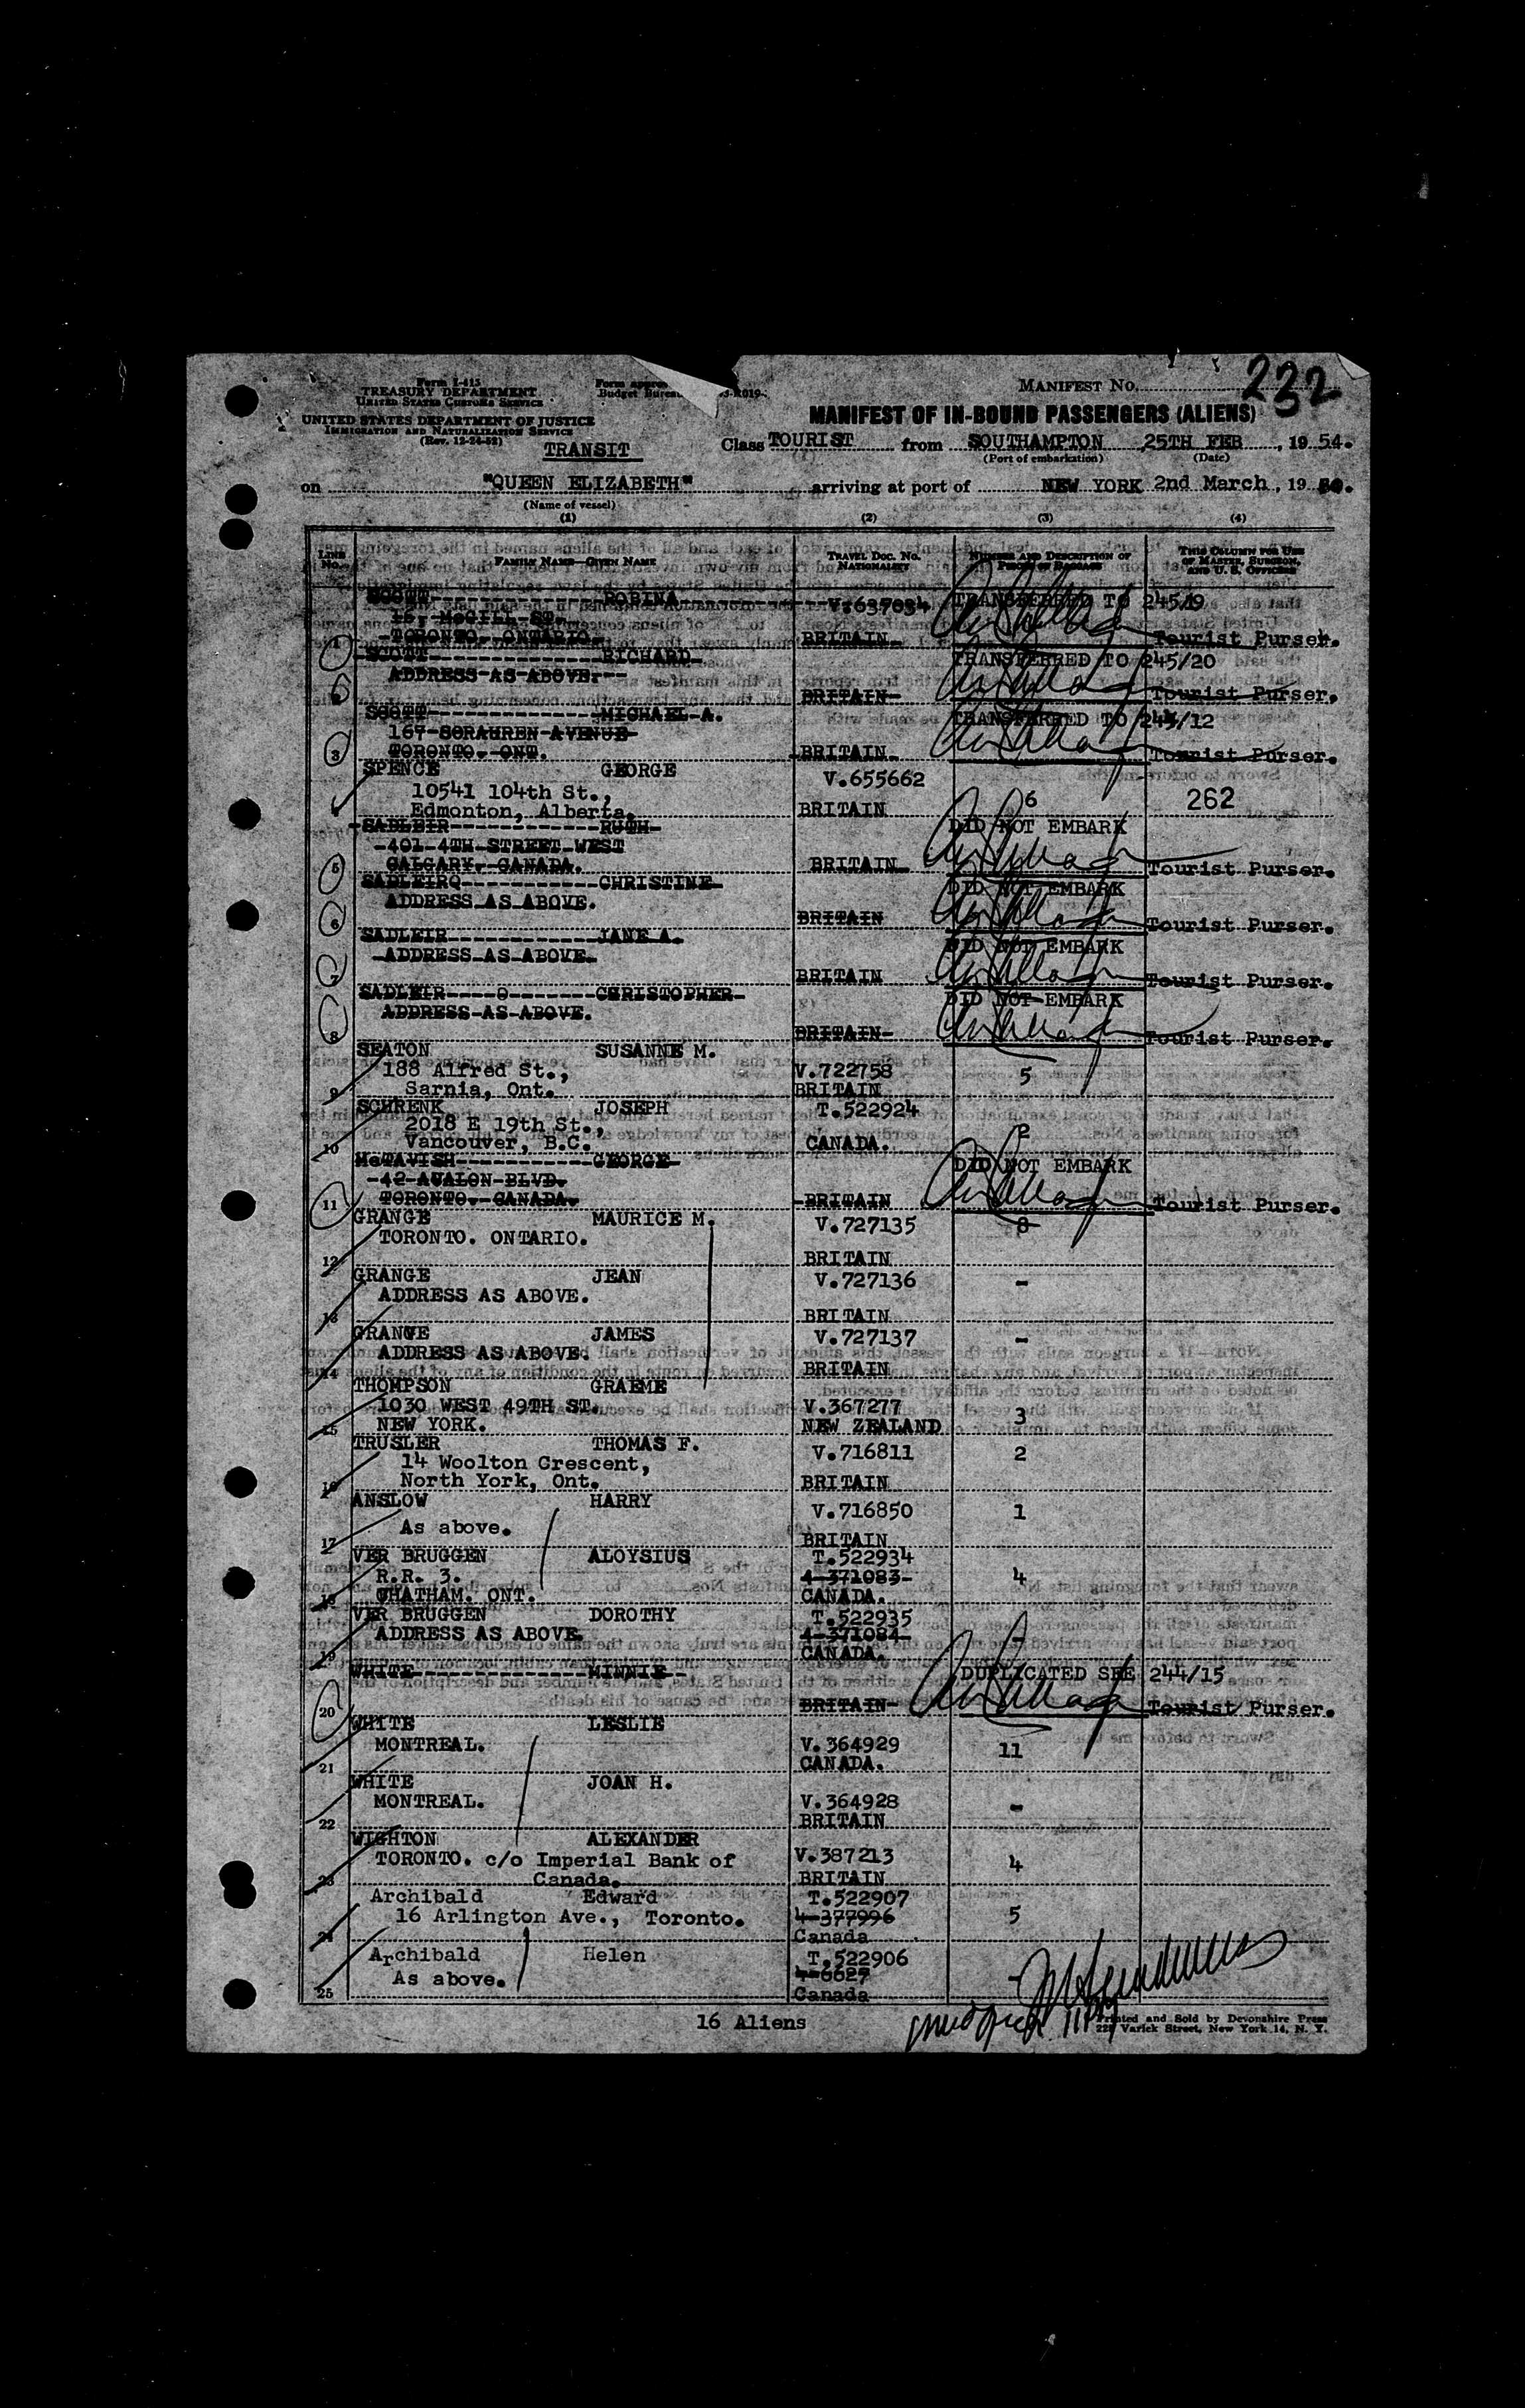 232
Form I-415
TREASURY DEPARTMENT
UNITED STATES CUSTOMS SERVICE
Form approv
Budget Bureau -R019-
MANIFEST No.
UNITED STATES DEPARTMENT OF JUSTICE
IMMIGRATION AND NATURALIZATION SERVICE
(Rev. 12-24-52)
MANIFEST OF IN-BOUND PASSENGERS (ALIENS)
TRANSIT
Class TOURIST from SOUTHAMPTON, 25TH FEB, 19 54.
(Port of embarkation) (Date)
on "QUEEN ELIZABETH" arriving at port of NEW YORK 2nd March, 19
(Name of vessel)
(1) (2) (3) (4)
LINE No. FAMILY NAME—GIVEN NAME TRAVEL DOC. NO. NATIONALITY NUMBER AND DESCRIPTION OF PIECES OF BAGGAGE THIS COLUMN FOR USE OF MASTER, SURGEON, AND U. S. OFFICERS
SCOTT ROBINA V.637034 TRANSFERRED TO 245/19
McGILL ST.
1 TORONTO. ONTARIO. BRITAIN Tourist Purser.
SCOTT RICHARD TRANSFERRED TO 245/20
ADDRESS AS ABOVE.
2 BRITAIN Tourist Purser.
SCOTT MICHAEL A. TRANSFERRED TO 244/12
167 SORAUREN AVENUE
3 TORONTO. ONT. BRITAIN Tourist Purser.
SPENCE GEORGE V.655662
10541 104th St.,
Edmonton, Alberta. BRITAIN 6 262
SADLEIR RUTH DID NOT EMBARK
401 4TH STREET WEST
5 CALGARY. CANADA. BRITAIN Tourist Purser.
SADLEIRQ CHRISTINE DID NOT EMBARK
ADDRESS AS ABOVE.
6 BRITAIN Tourist Purser.
SADLEIR JANE A. DID NOT EMBARK
ADDRESS AS ABOVE
7 BRITAIN Tourist Purser.
SADLEIR CHRISTOPHER DID NOT EMBARK
ADDRESS AS ABOVE.
8 BRITAIN Tourist Purser.
SEATON SUSANNE M.
188 Alfred St., V.722758 5
9 Sarnia, Ont. BRITAIN
SCHRENK JOSEPH T.522924
2018 E 19th St., 2
10 Vancouver, B.C. CANADA.
McTAVISH GEORGE DID NOT EMBARK
42 AVALON BLVD.
11 TORONTO. CANADA. BRITAIN Tourist Purser.
GRANGE MAURICE M. V.727135 8
TORONTO. ONTARIO.
12 BRITAIN
GRANGE JEAN V.727136 -
ADDRESS AS ABOVE.
13 BRITAIN
GRANGE JAMES V.727137 -
ADDRESS AS ABOVE.
14 BRITAIN
THOMPSON GRAEME
1030 WEST 49TH ST. V.367277 3
15 NEW YORK. NEW ZEALAND
TRUSLER THOMAS F. V.716811 2
14 Woolton Crescent,
16 North York, Ont. BRITAIN
ANSLOW HARRY V.716850 1
As above.
17 BRITAIN
VER BRUGGEN ALOYSIUS T.522934
R.R. 3. 4-371083 4
18 CHATHAM. ONT. CANADA.
VER BRUGGEN DOROTHY T.522935
ADDRESS AS ABOVE. 4-371084 -
19 CANADA.
WHITE MINNIE DUPLICATED SEE 244/15
20 BRITAIN Tourist Purser.
WHITE LESLIE
MONTREAL. V.364929 11
21 CANADA.
WHITE JOAN H.
MONTREAL. V.364928 -
22 BRITAIN
WIGHTON ALEXANDER
TORONTO. c/o Imperial Bank of V.387213 4
23 Canada. BRITAIN
Archibald Edward T.522907
16 Arlington Ave., Toronto. 4-377996 5
24 Canada
Archibald Helen T.522906
As above. 4-6627 -
25 Canada
16 Aliens
Printed and Sold by Devonshire Press
225 Varick Street, New York 14, N. Y.